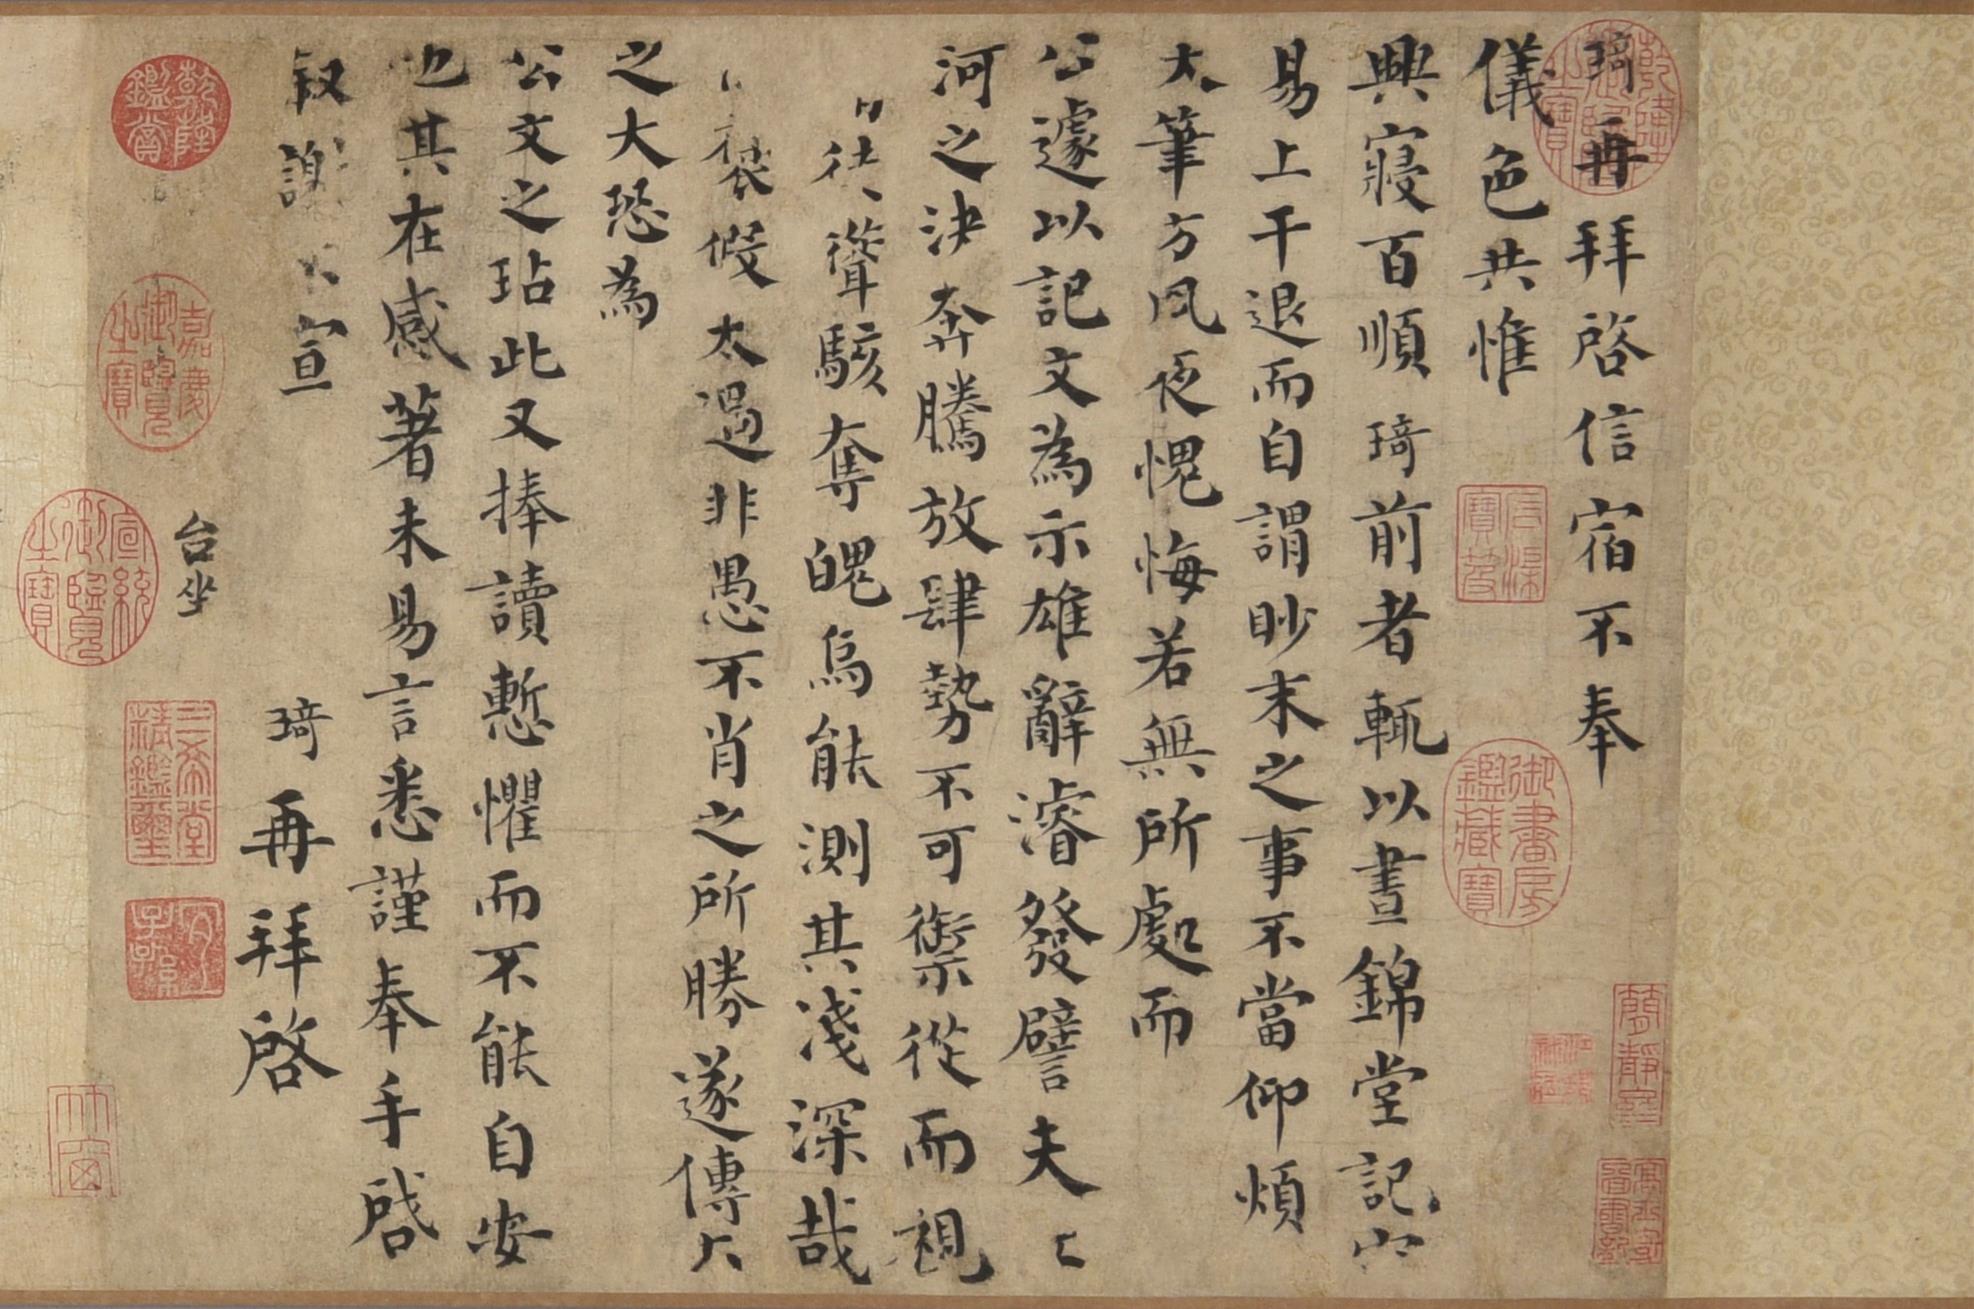 琦再拜啓信宿不奉
儀色共惟
興寢百順琦前者輒以晝錦堂記
易上干退而自謂眇末之事不當仰煩
大筆方夙夜愧悔若無所處而
公遽以記文為示雄辭濬發譬夫
河之決奔騰放肆勢不可禦從而視
徒聳駭奪魄烏能測其淺深哉
褒假太過非愚不肖之所勝遂傳
之大恐為
公文之玷此又捧讀慙懼而不能自安
也其在感著未易言悉謹奉手啓
叙謝宣
琦再拜啓
台坐
乾隆御覽之寶
乾隆鑑賞
嘉慶御覽之寶
宣統御覽之寶
三希堂精鑑璽
宜子孫
御書房鑑藏寶